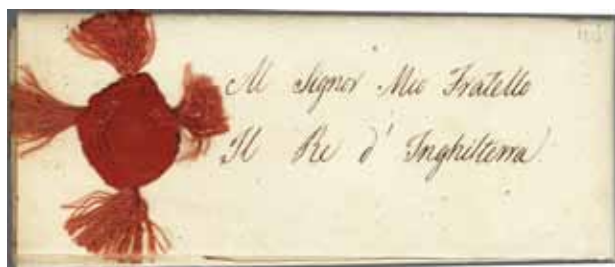 Al Signor Mio Fratello
Il Re d' Inghilterra